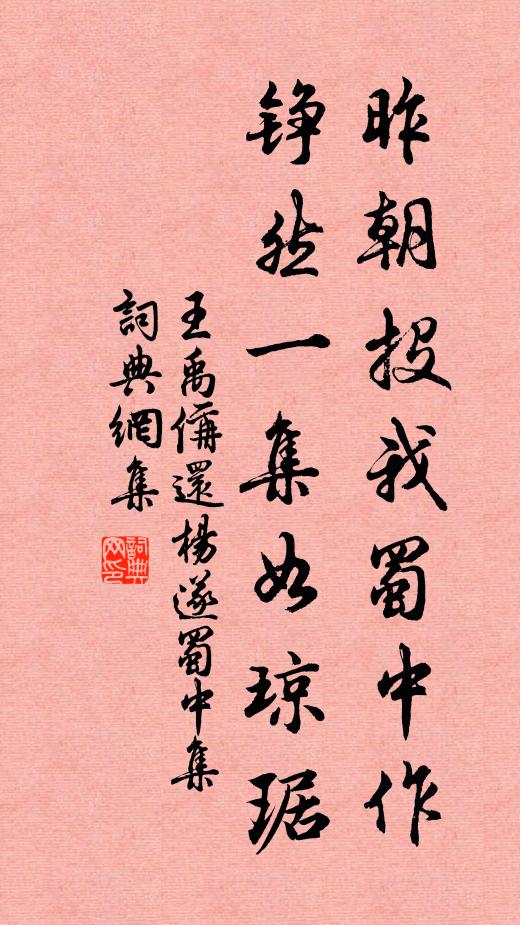 昨朝投我蜀中作
铮然一集如琼琚
王禹偁還楊遂蜀中集
詞典網集
詞典网印